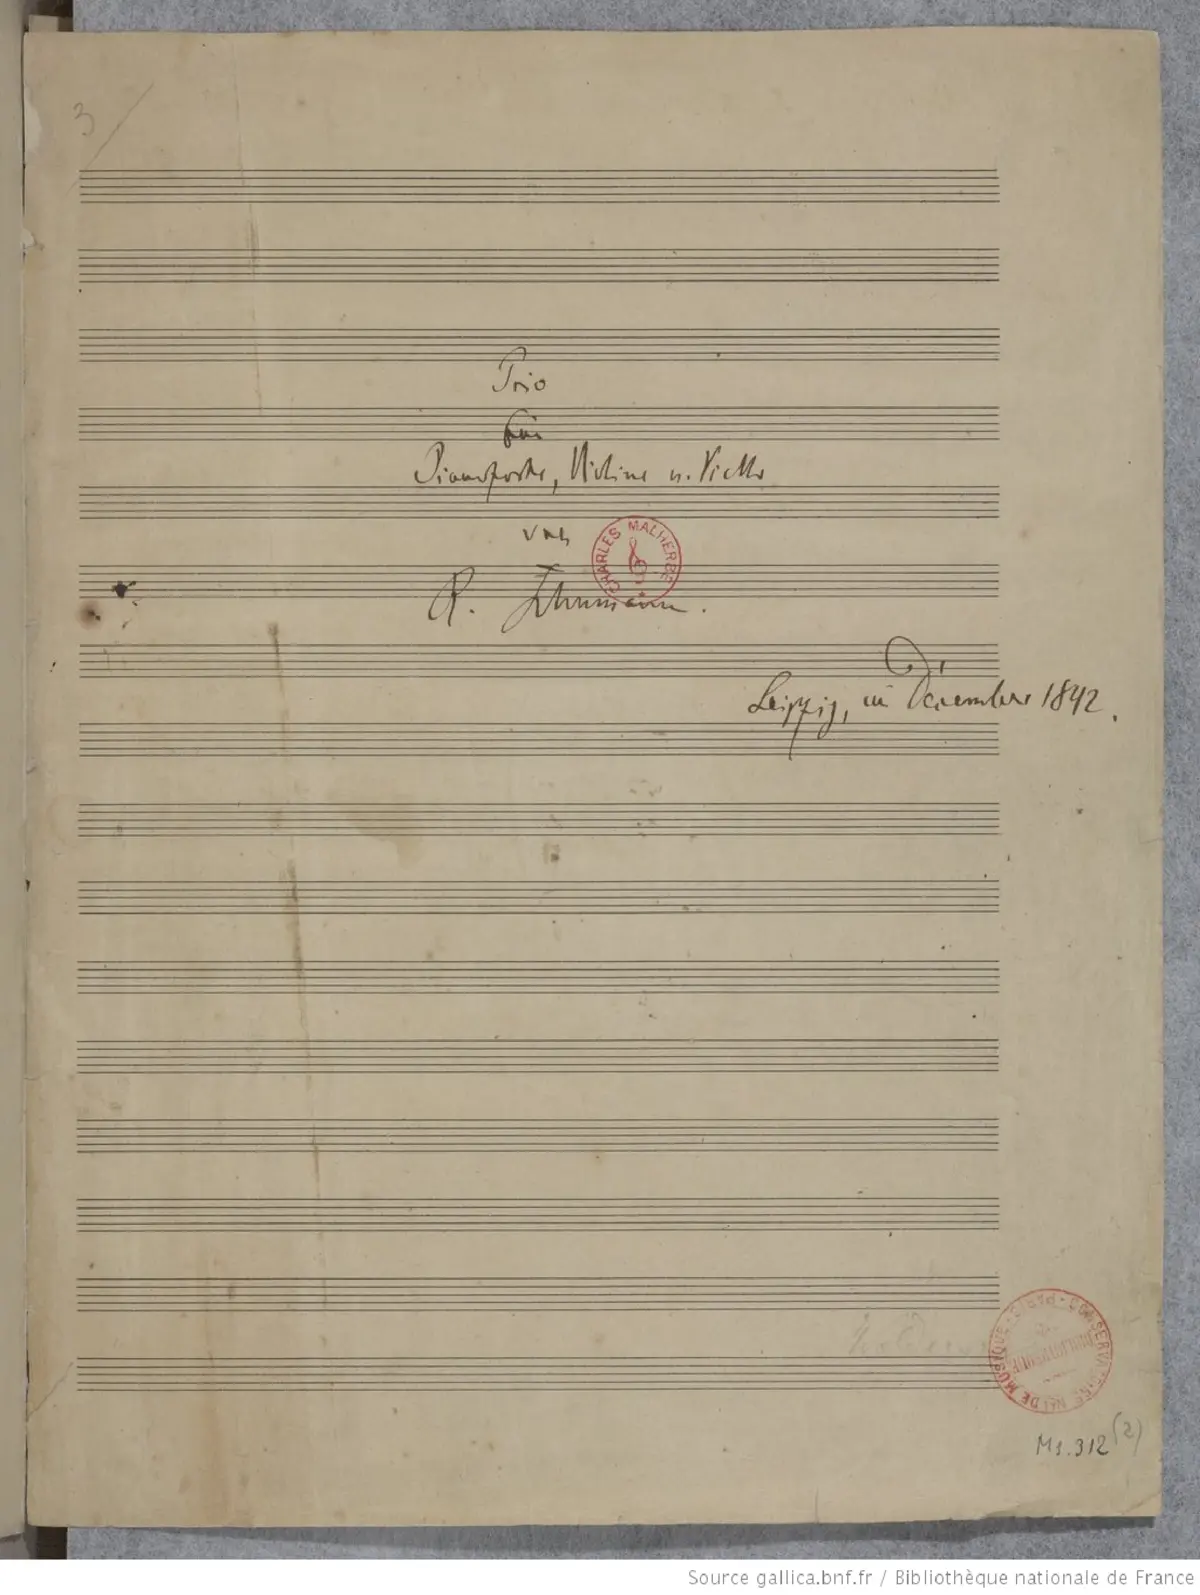 3
Trio
für
Pianoforte, Violine u. Vcello
von
CHARLES MALHERBE
R. Schumann.
Leipzig, im December 1842.
CONSERVATOIRE NAL DE MUSIQUE · PARIS ·
BIBLIOTHÈQUE
Ms. 312 (2)
Source gallica.bnf.fr / Bibliothèque nationale de France